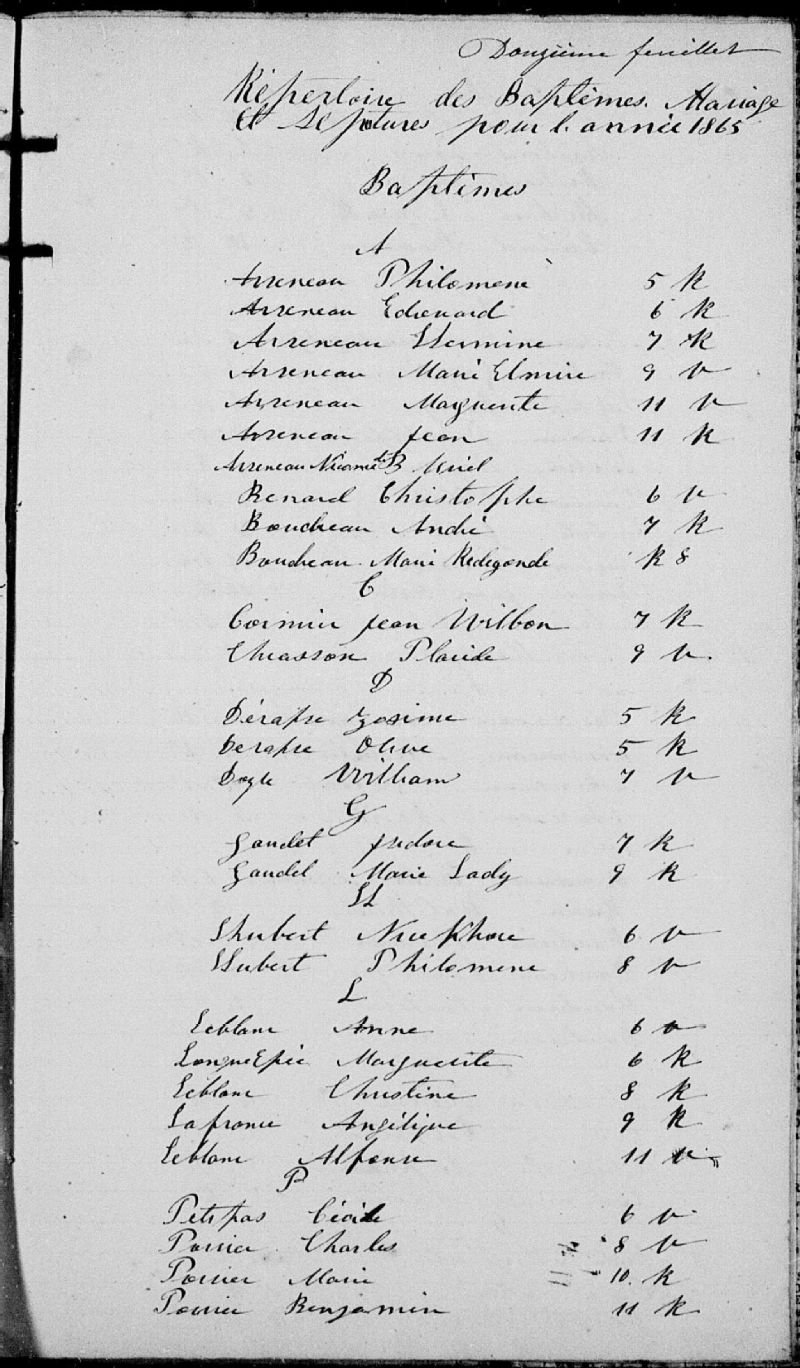 Douzième feuillet
Répertoire des Baptêmes. Mariage
et Sepotures pour l'année 1865
Baptêmes
A
Arseneau Philomenè 5 R
Arseneau Edouard 6 R
Arseneau Hermine 7 R
Arseneau Marie Elmire 9 v
Arseneau Marguerite 11 v
Arseneau Jean 11 R
Arseneau B
Renard Christophe 6 v
Boudreau André 7 R
Boudreau Marie Redegonde R 8
C
Cormier Jean Wilbon 7 R
Chiasson Placide 9 v.
D
Dérapse Zosime 5 R
Derapse Olive 5 R
Doyle William 7 v
G
Gaudet Isidore 7 R
Gaudet Marie Lady 9 R
H
Hubert Nicephore 6 v
Hubert Philomene 8 v
L
Leblanc Anne 6 v
LonguEpée Marguerite 6 R
Leblanc Christine 8 R
Lafrance Angélique 9 R
Leblanc Alfonse 11 v
P
Petitpas Cécile 6 v
Poirier Charles 8 v
Poirier Marie 10. R
Poirier Benjamin 11 R